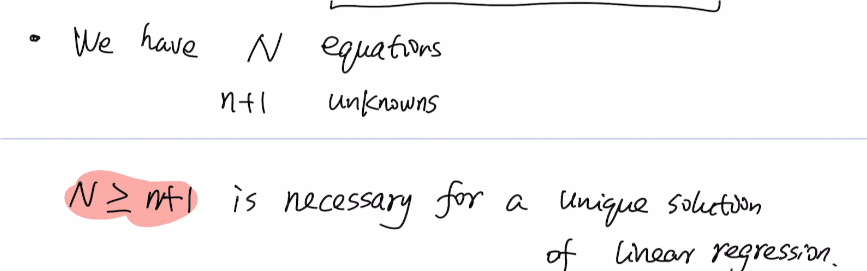 • We have N equations
n+1 unknowns
N ≥ n+1 is necessary for a unique solution
of linear regression.